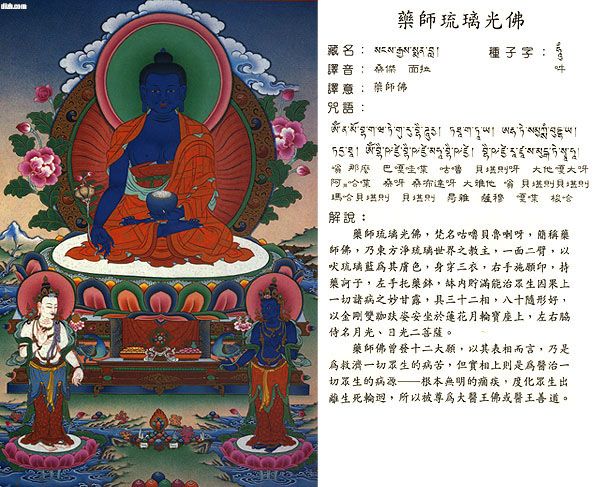 diik.com
藥師琉璃光佛
藏名：སངས་རྒྱས་སྨན་བླ། 種子字：ཧཱུྃ
譯音：桑傑 面拉 吽
譯意：藥師佛
咒語：
嗡 那麼 咕嚕 貝堪則呀 大他嘎大呀
桑呀 桑布達呀 嗡 貝堪則貝堪則
瑪哈貝堪則 貝堪則 薩穆 梭哈
解說：
藥師琉璃光佛，梵名咕嚕貝魯喇呀，簡稱藥
師佛，乃東方淨琉璃世界之教主，一面二臂，以
吠琉璃藍為其膚色，身穿三衣，右手施願印，持
藥訶子，左手托藥缽，缽內貯滿能治眾生因果上
一切諸病之妙甘露，具三十二相，八十隨形好，
以金剛雙跏趺姿安坐於蓮花月輪寶座上，左右脇
侍名月光、日光二菩薩。
藥師佛曾發十二大願，以其表相而言，乃是
為救濟一切眾生的病苦，但實相上則是為醫治一
切眾生的病源——根本無明的痼疾，度化眾生出
離生死輪迴，所以被尊為大醫王佛或醫王善逝。